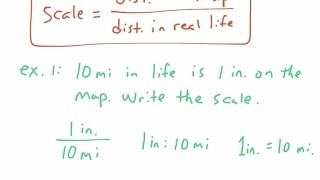 Scale =
dist. in real life
ex. 1: 10 mi in life is 1 in. on the
map. Write the scale.
1 in.
10 mi
1 in : 10 mi
1 in. = 10 mi.